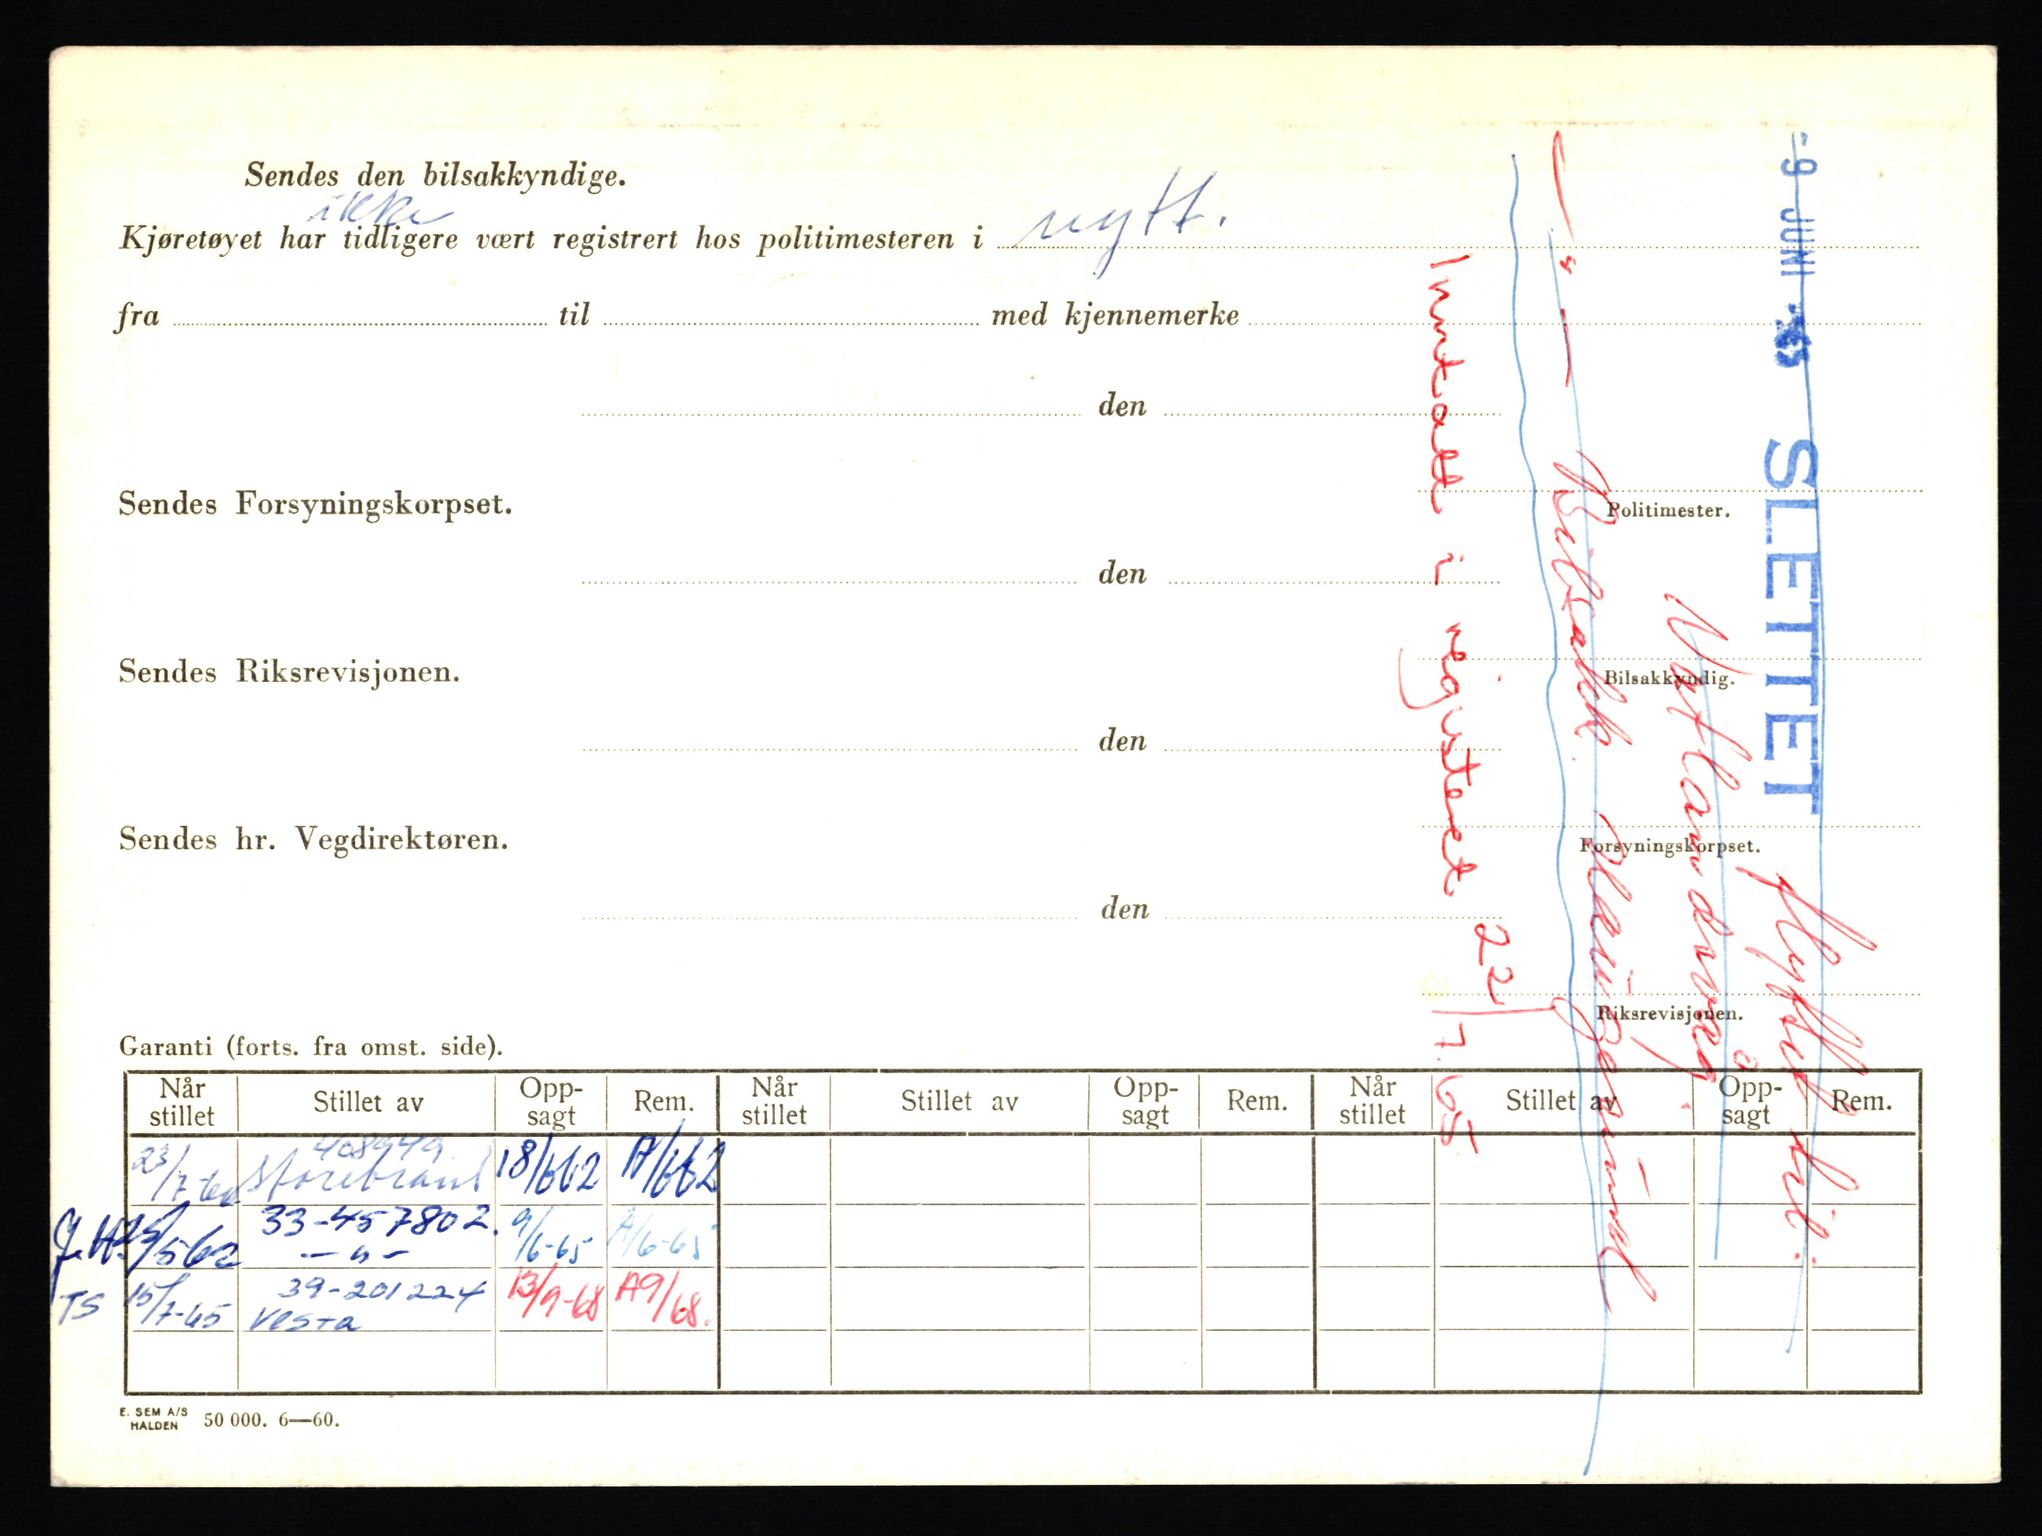 Sendes den bilsakkyndige.
ikke
Kjøretøyet har tidligere vært registrert hos politimesteren i nytt.
fra til med kjennemerke
den
Politimester.
Sendes Forsyningskorpset.
den
Bilsakkyndig.
Sendes Riksrevisjonen.
den
Forsyningskorpset.
Sendes hr. Vegdirektøren.
den
Riksrevisjonen.
-9 JUNI
SLETTET
flyttet til:
Inntatt i registeret 22/7.65
— " —
Garanti (forts. fra omst. side).
Når stillet Stillet av Opp-sagt Rem. Når stillet Stillet av Opp-sagt Rem. Når stillet Stillet av Opp-sagt Rem.
408949
23/7-60 Storebrand 18/662 A/662
33-457802.
J.H. 25/562 — " — 9/6-65 A/6-65
39-201224
TS 15/7-65 Vesta 13/9-68 A9/68.
E. SEM A/S
HALDEN 50 000. 6—60.